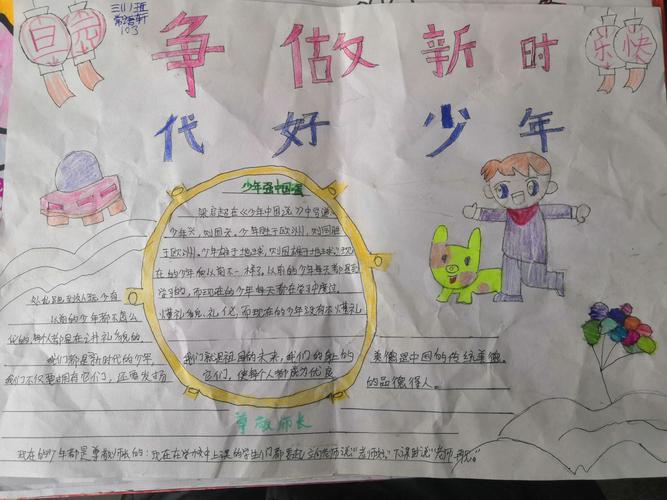 三(1)班
103
元旦
快乐
争做新时
代好少年
少年强中国强
梁启超在《少年中国说》中写道
少年兴,则国兴。少年胜于欧洲,则国胜
于欧洲。少年雄于地球,则国雄于地球。"现
在的少年和以前不一样了,以前的少年每天都是
学习的,而现在的少年每天都在学习中度过.
懂礼貌、礼仪,而现在的少年没有不懂礼
以前的少年都不怎么
的,每个人都在讲礼貌的.
我们都是新时代的少年,
我们就是祖国的未来,我们的身上的
美德是中国的传统美德。
我们不仅要拥有它们,还要发扬
它们,使每个人都成为优良
的品德得人。
尊敬师长
现在的少年都是尊敬师长的:现在在学校中上课的学生们都要起立向老师说"老师好",下课时说"老师